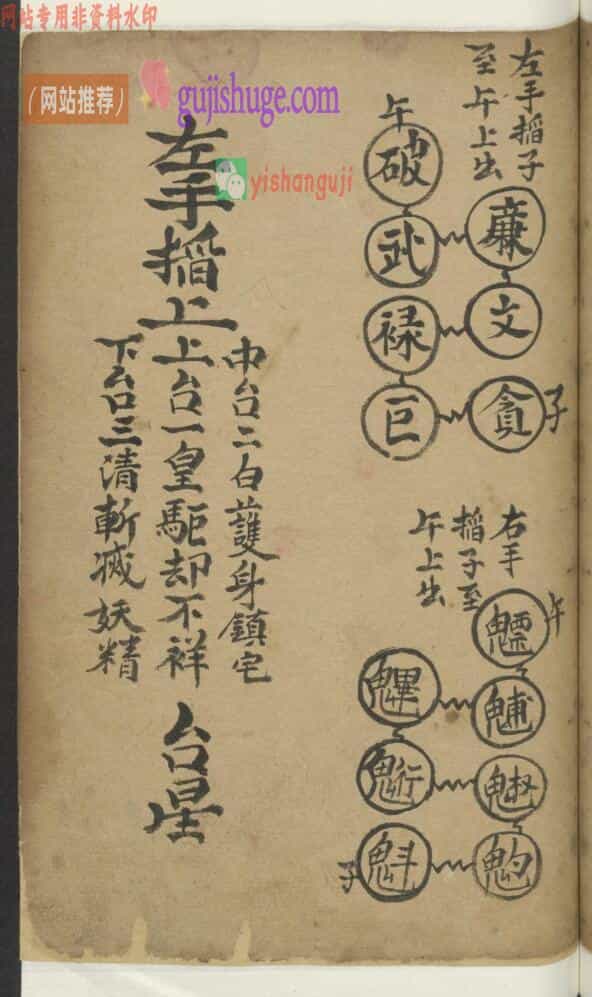 网站专用非资料水印
(网站推荐)
gujishuge.com
yishanguji
左手搯子
至午上出
午
破
廉
武
文
禄
貪
巨
子
右手
搯子至
午上出
午
魒
魓
魓
魁
魓
子
左手搯上
中台二白護身鎮宅
上台一皇駈却不祥
下台三清斬滅妖精
台星